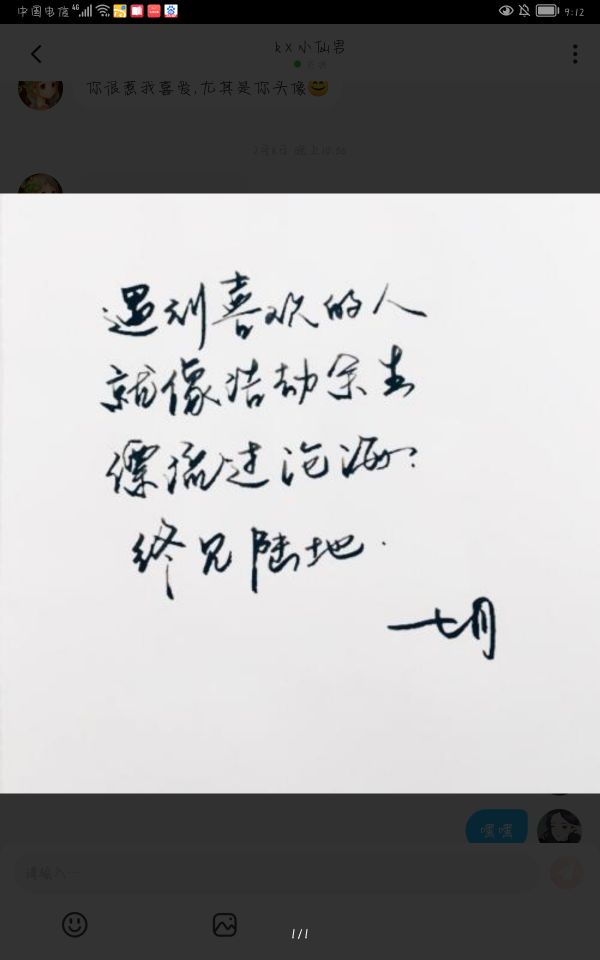 中国电信 4G
9:12
kx小仙男
你很惹我喜爱,尤其是你头像😊
遇到喜欢的人
就像浩劫余生
漂流过沧海
终见陆地.
一七月
嘿嘿
请输入…
1/1